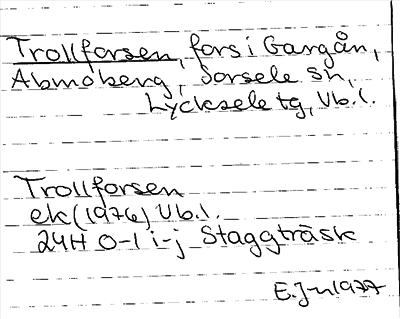 Trollforsen, fors i Gargån,
Abmoberg, Sorsele sn,
Lycksele tg, Vb.l.
Trollforsen
ek (1976) Vb.l.
24H 0-1 i-j Staggträsk
E.J-n 1977